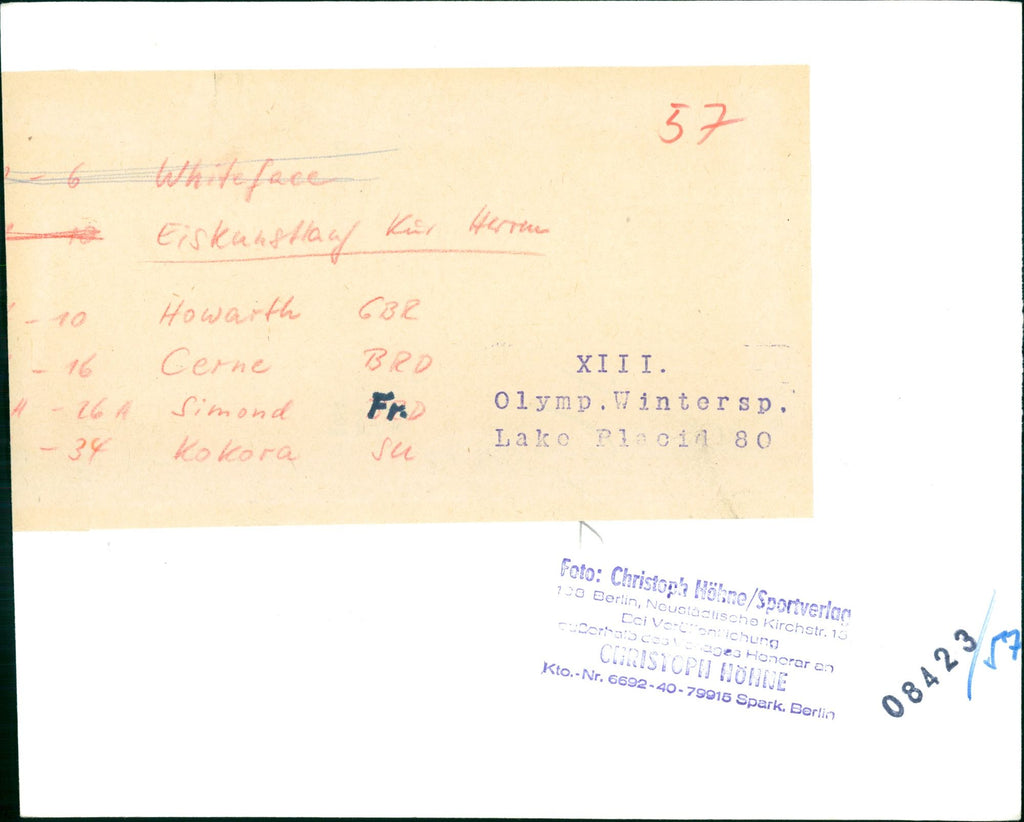 57
- 6 Whiteface
18 Eiskunstlauf Kür Herren
- 10 Howarth GBR
- 16 Cerne BRD
- 26A Simond Fr.
- 34 Kokora SU
XIII.
Olymp.Wintersp.
Lake Placid 80
Foto: Christoph Höhne/Sportverlag
108 Berlin, Neustädtische Kirchstr. 15
Bei Veröffentlichung
außerhalb des Verlages Honorar an
CHRISTOPH HÖHNE
Kto.-Nr. 6692-40-79915 Spark. Berlin
08423/57